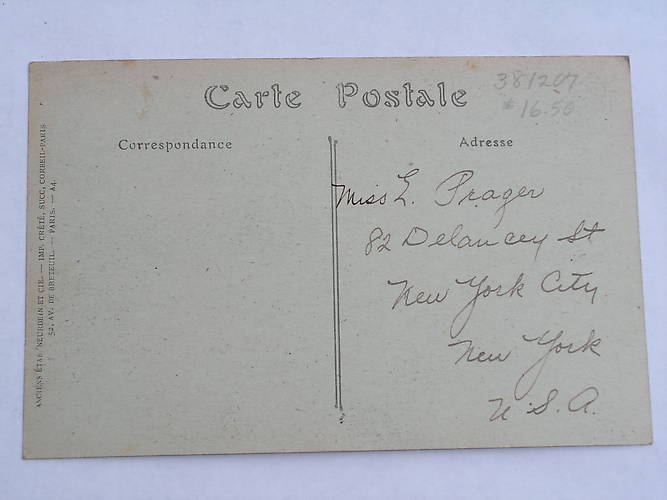 Carte Postale
381207
$16.50
Correspondance
Adresse
Miss L. Prager
82 Delancey St
New York City
New York
U.S.A.
ANCIENS ÉTAB. NEURDEIN ET CIE. — IMP. CRÉTÉ, SUCC, CORBEIL-PARIS
52, AV. DE BRETEUIL. — PARIS. — A4.